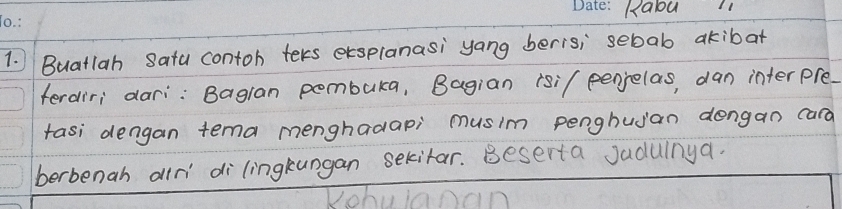 No.: Date: Rabu 11
1. Buatlah satu contoh teks eksplanasi yang berisi sebab akibat
terdiri dari: Bagian pembuka, Bagian isi/penjelas, dan interpre-
tasi dengan tema menghadapi musim penghujan dengan cara
berbenah diri di lingkungan sekitar. Beserta Judulnya.